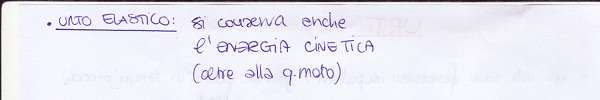 • URTO ELASTICO: si conserva anche
l'ENERGIA CINETICA
(oltre alla q.moto)